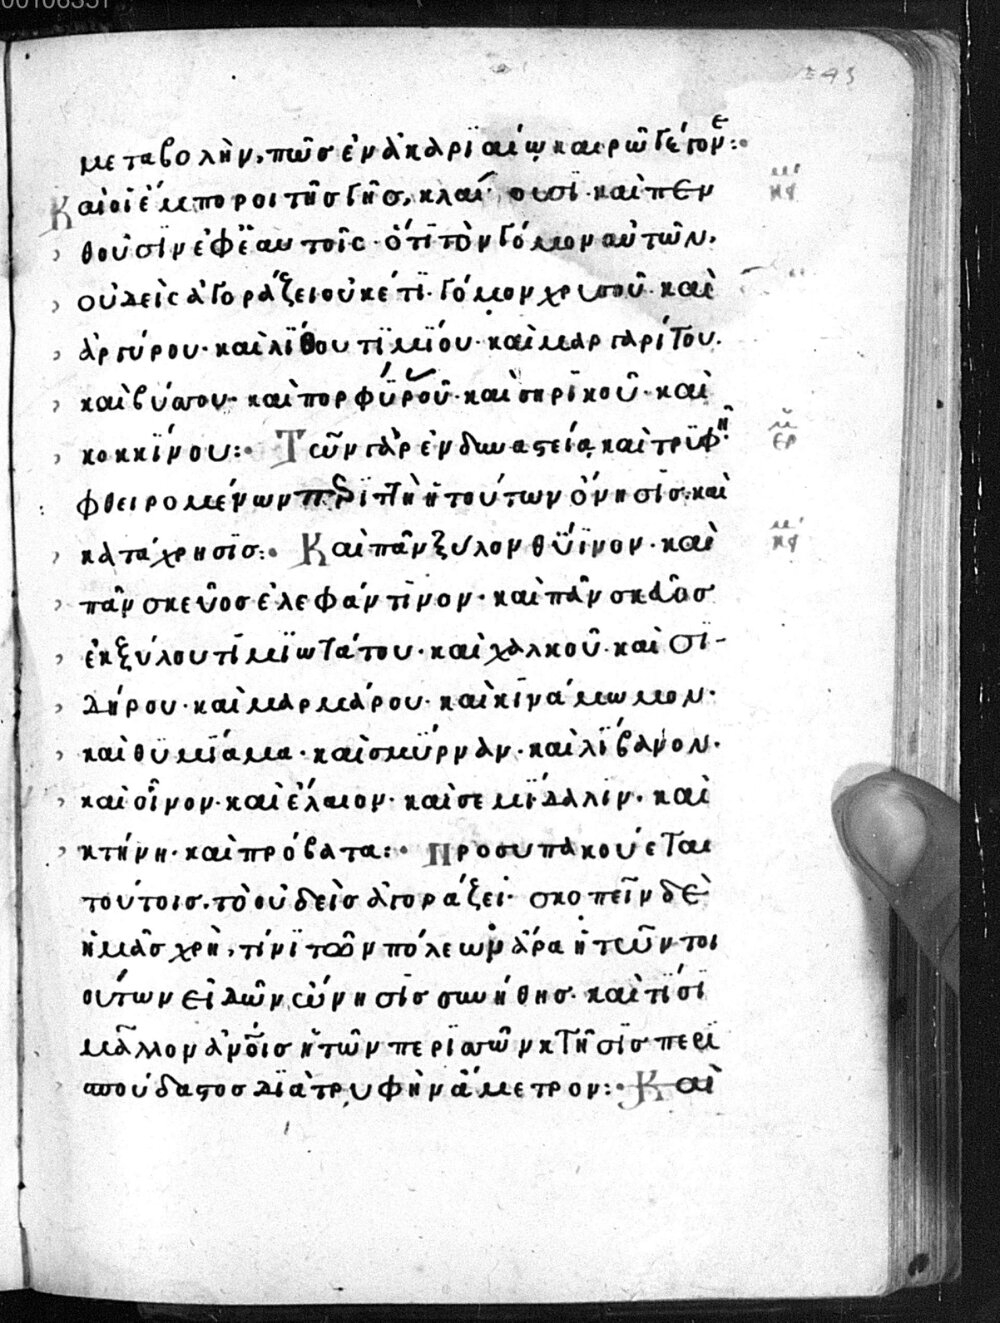 00106351
243
μεταβολὴν, πῶς ἐν ἀκαρϊαίω καιρῶ γέγονεν:·
Καὶ οἱ ἔμποροι τῆς γῆς, κλαίουσϊ· καὶ πεν
θοῦσϊν ἐφ' ἑαυτοῖς· ὅτϊ τὸν γόμον αὐτῶν,
οὐδεὶς ἀγοράζει οὐκέτϊ· γόμον χρυσοῦ· καὶ
ἀργύρου· καὶ λΐθου τϊμΐου· καὶ μαργαρίτου.
καὶ βύσσου· καὶ πορφϋροῦ· καὶ σηρϊκοῦ· καὶ
κοκκϊνου:· Τῶν γὰρ ἐν δυναστεία καὶ τρϋφῆ
φθειρομένων περιττὴ ἡ τούτων ὄνησϊς· καὶ
κατάχρησϊς:· Καὶ πᾶν ξυλον θϋϊνον· καὶ
πᾶν σκεῦος ἐλεφάντϊνον· καὶ πᾶν σκεῦος
ἐκ ξύλου τϊμϊωτάτου· καὶ χαλκοῦ· καὶ σϊ-
δήρου· καὶ μαρμάρου· καὶ κϊνάμωμον·
καὶ θϋμϊαμα· καὶ σμϋρναν· καὶ λϊβανον·
καὶ οἶνον· καὶ ἔλαιον· καὶ σεμΐδαλϊν· καὶ
κτήνη· καὶ πρόβατα:· Προσυπακούεται
τούτοις. τὸ οὐδεὶς ἀγοράζει· σκοπεῖν δὲ
ἡμᾶς χρὴ, τίνϊ τῶν πόλεων ἄρα ἡ τῶν τοι
ούτων εἰδῶν ὤνησϊς συνήθης· καὶ τϊσϊ
μᾶλλον ἀνοις ἡ τῶν περϊσσῶν κτῆσϊς περϊ
σπούδαστος διὰ τρυφὴν ἄμετρον:· Καὶ